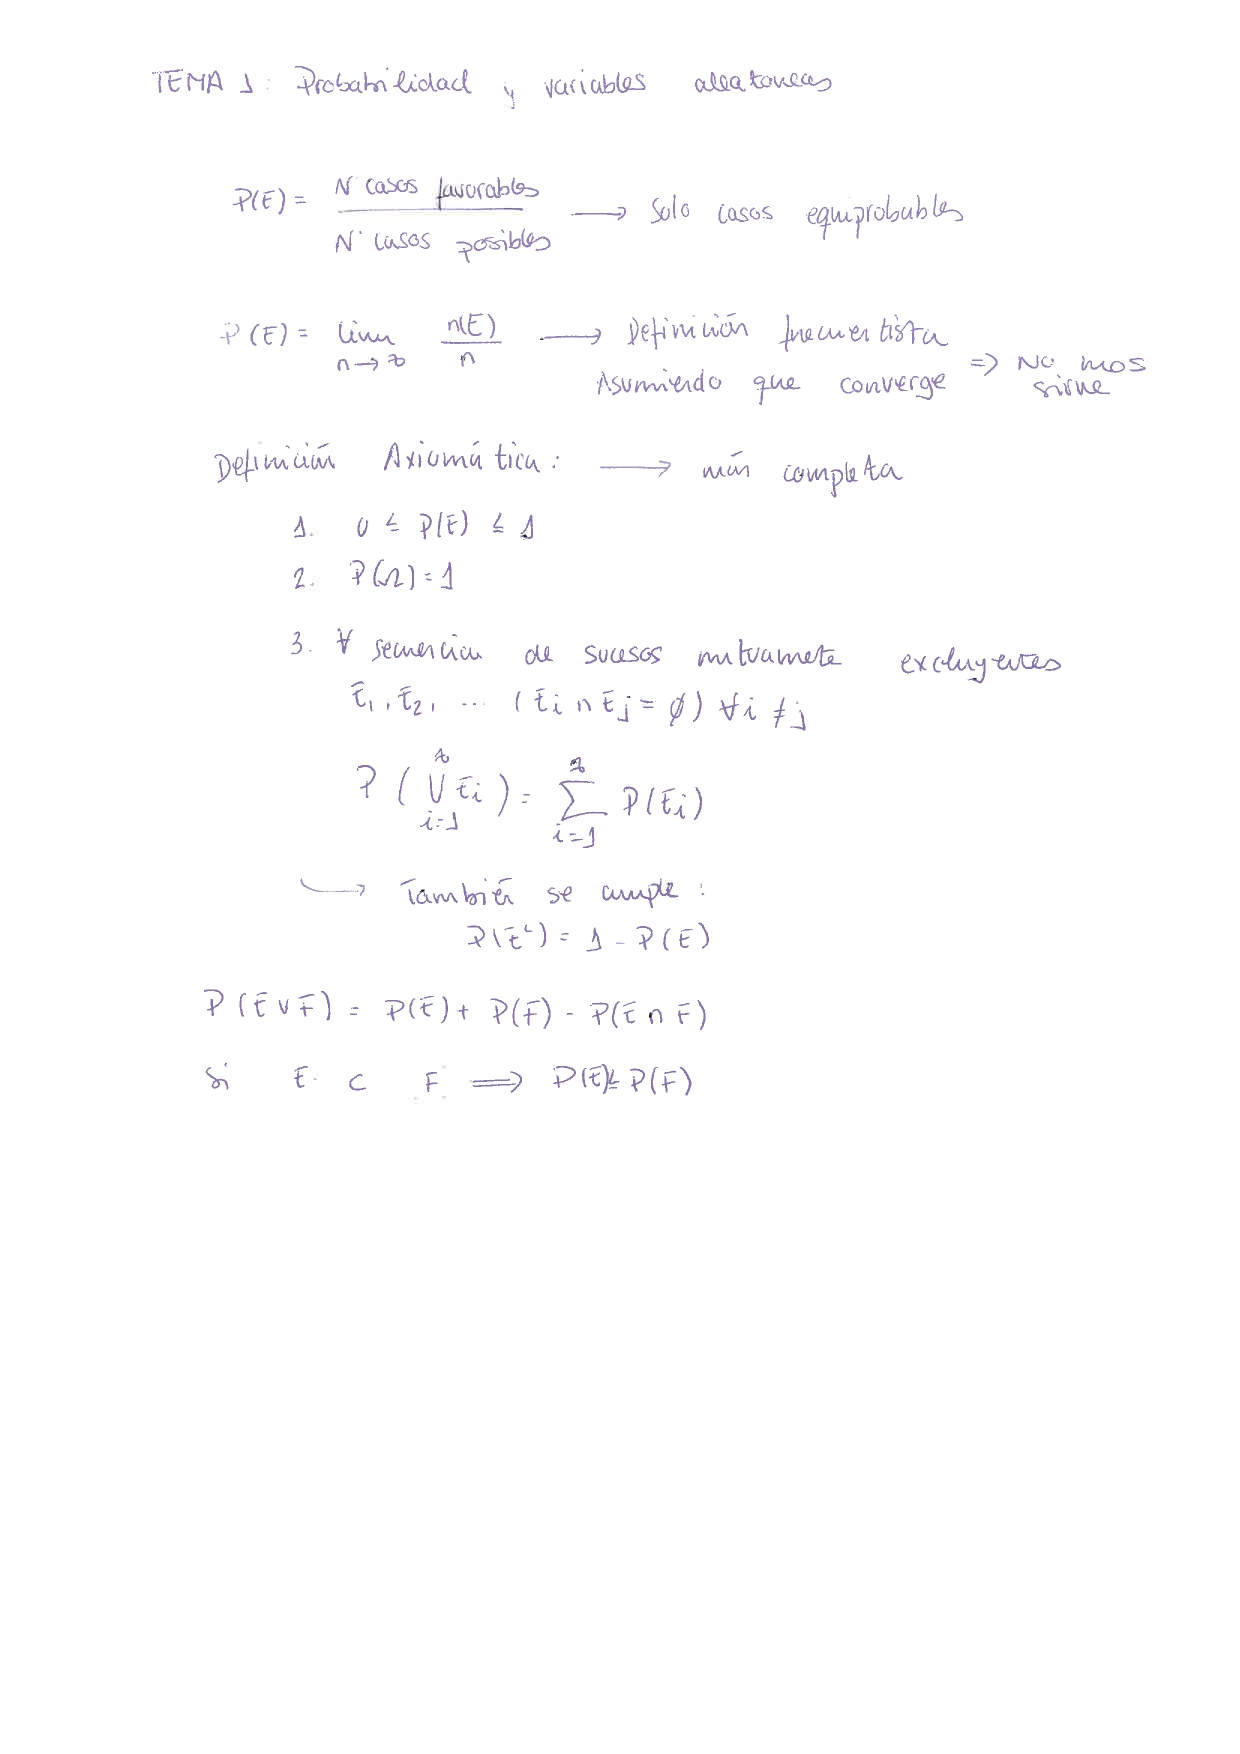 TEMA 1: Probabilidad y variables aleatorias
P(E) = Nº casos favorables / Nº casos posibles → Solo casos equiprobables
P(E) = lim n→∞ n(E)/n → Definición frecuentista
Asumiendo que converge ⇒ No nos sirve
Definición Axiomática: → más completa
1. 0 ≤ P(E) ≤ 1
2. P(Ω) = 1
3. ∀ secuencia de sucesos mutuamete excluyentes
E1, E2, ... (Ei ∩ Ej = ∅) ∀i ≠ j
P(∞ ∪ i=1 Ei) = ∞ ∑ i=1 P(Ei)
→ También se cumple:
P(Eᶜ) = 1 - P(E)
P(E ∪ F) = P(E) + P(F) - P(E ∩ F)
Si E ⊂ F ⟹ P(E) ≤ P(F)